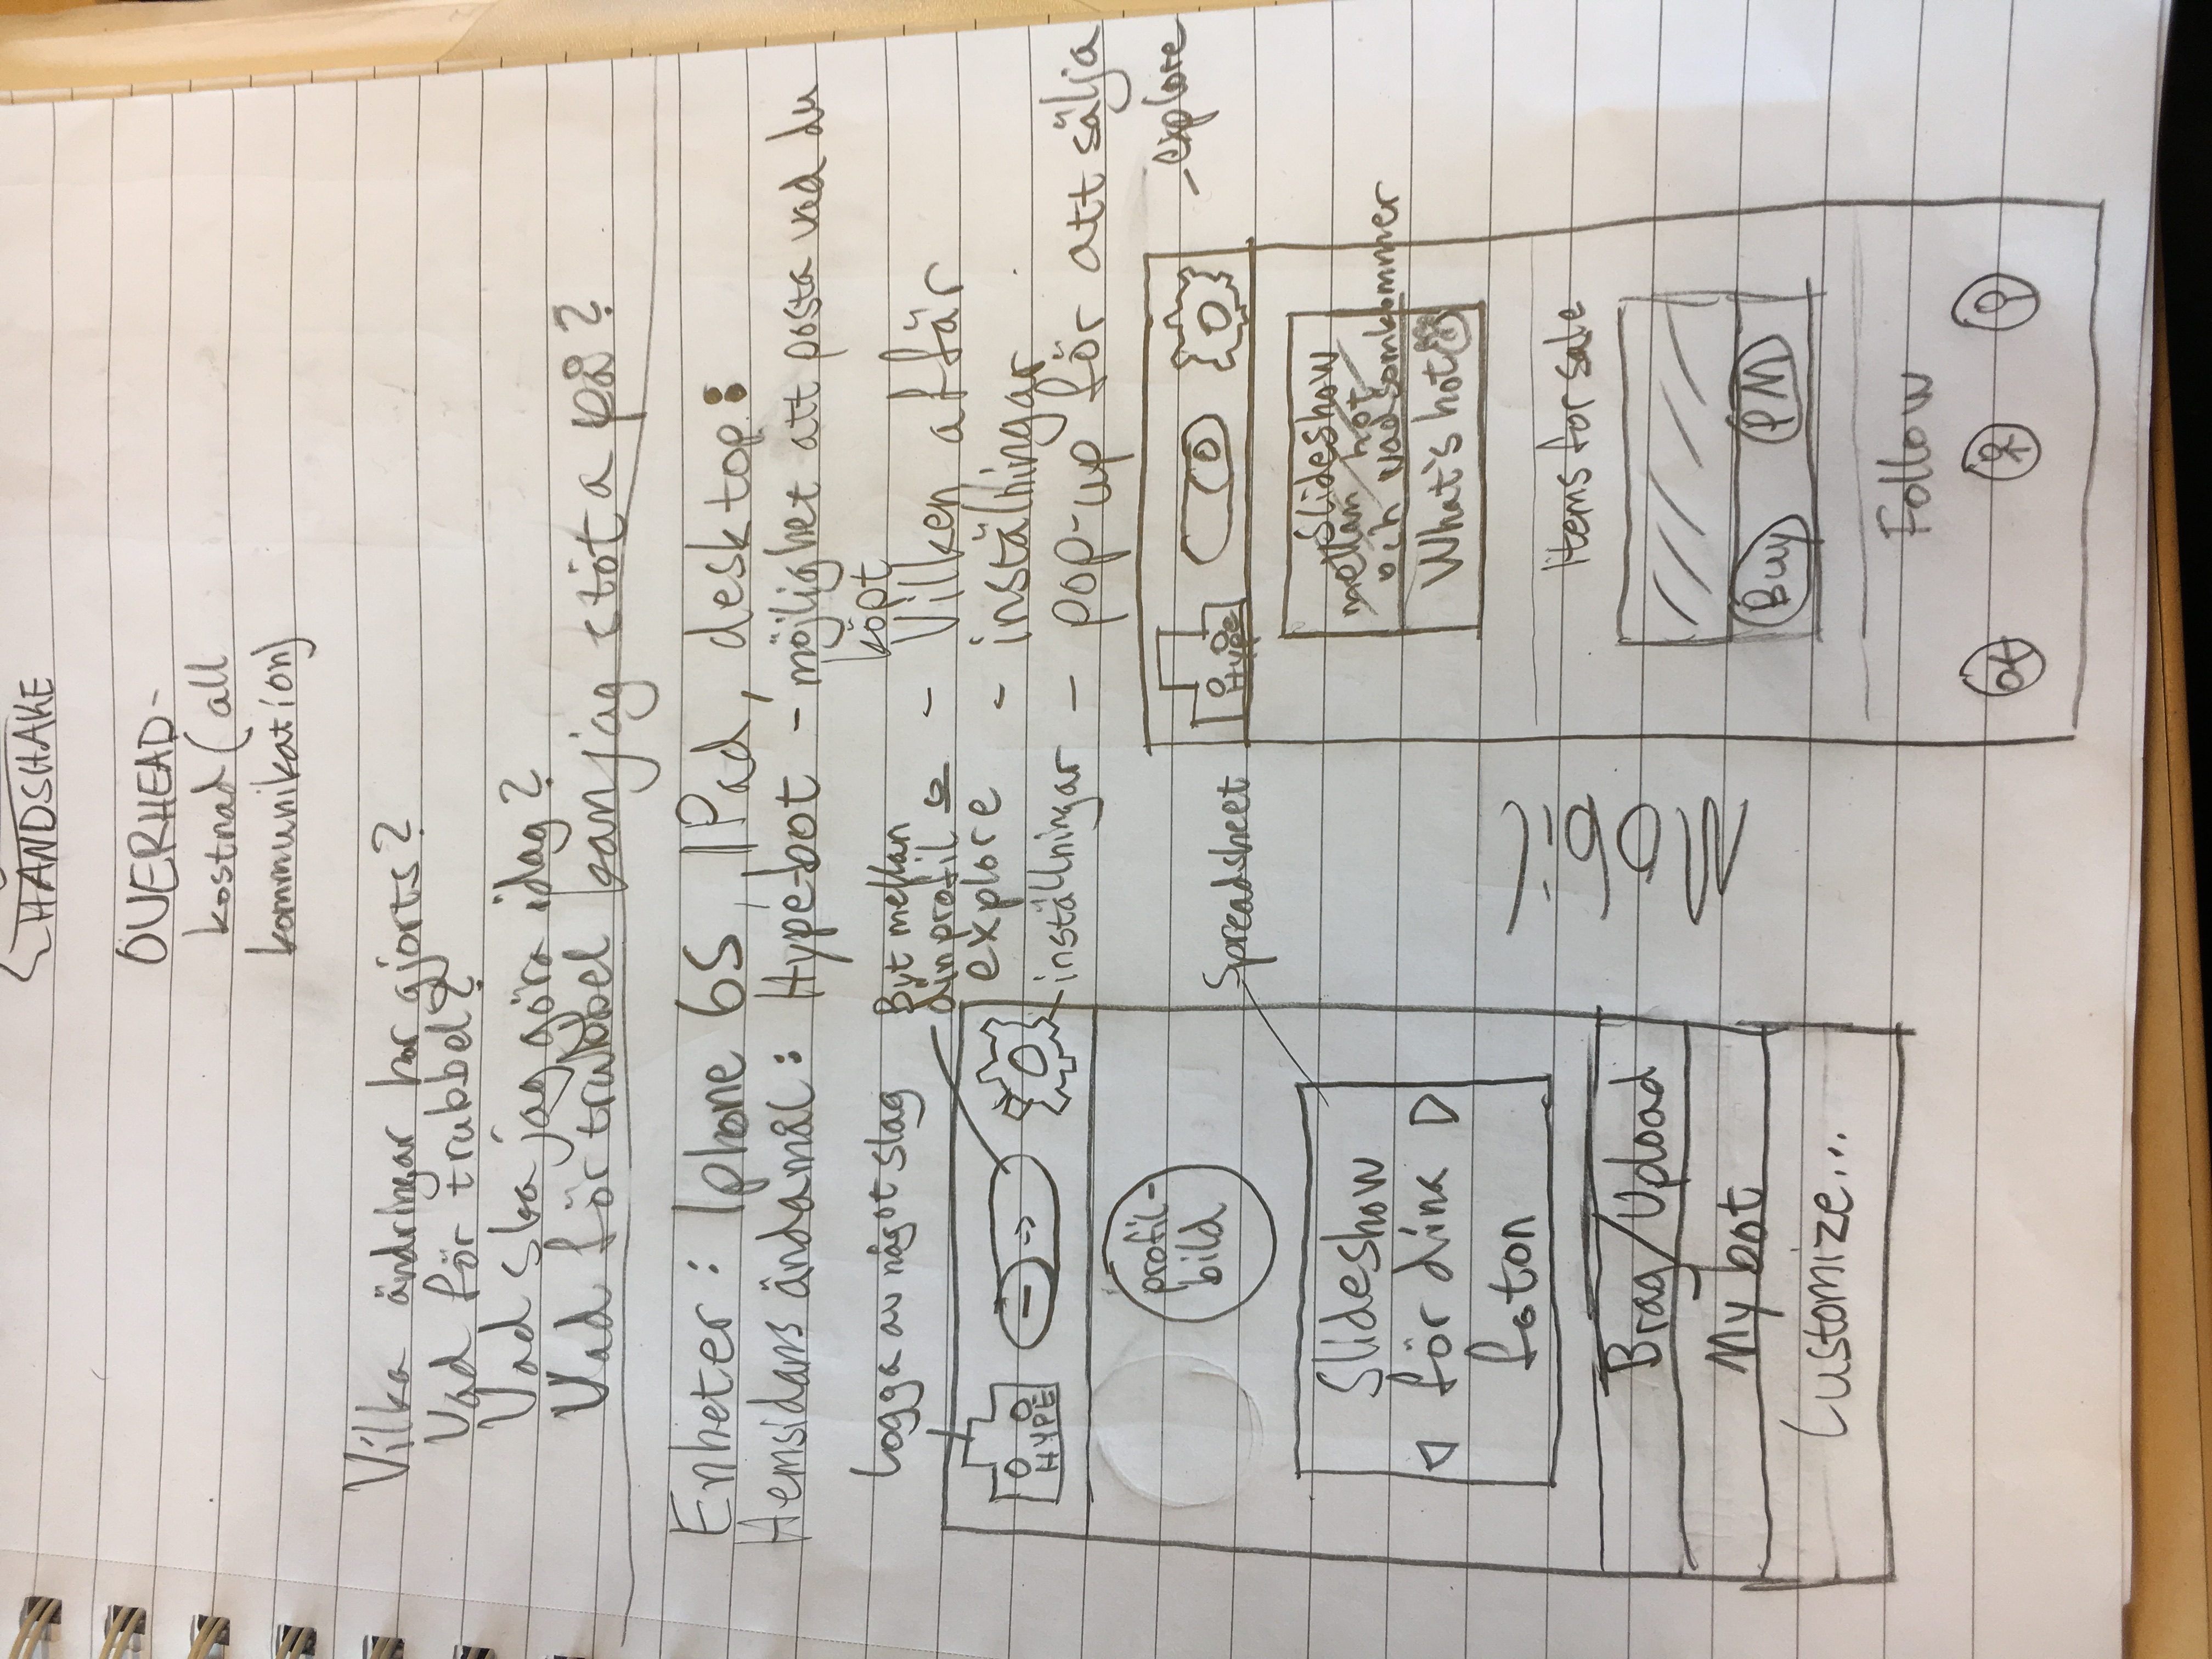 HANDSHAKE
OVERHEAD-
kostnad (all
kommunikation)
Vilka ändringar har gjorts?
Vad för trubbel?
Vad ska jag göra idag?
Vad för trubbel kan jag stöta på?
Enheter: Iphone 6S, IPad, desktop:
Hemsidans ändamål: Hype-bot - möjlighet att posta vad du
köpt
- Vilken affär
- instälningar
- pop-up för att sälja
- explore
Logga av något slag
Byt mellan
din profil
explore
inställningar
HYPE
profil-
bild
Spreadsheet
Slideshow
för dina
foton
Brag/Upload
My bot
Customize...
Mobil
Hype
Slideshow
mellan hot
och vad som kommer
What's hot
Items for sale
Buy PM
Follow